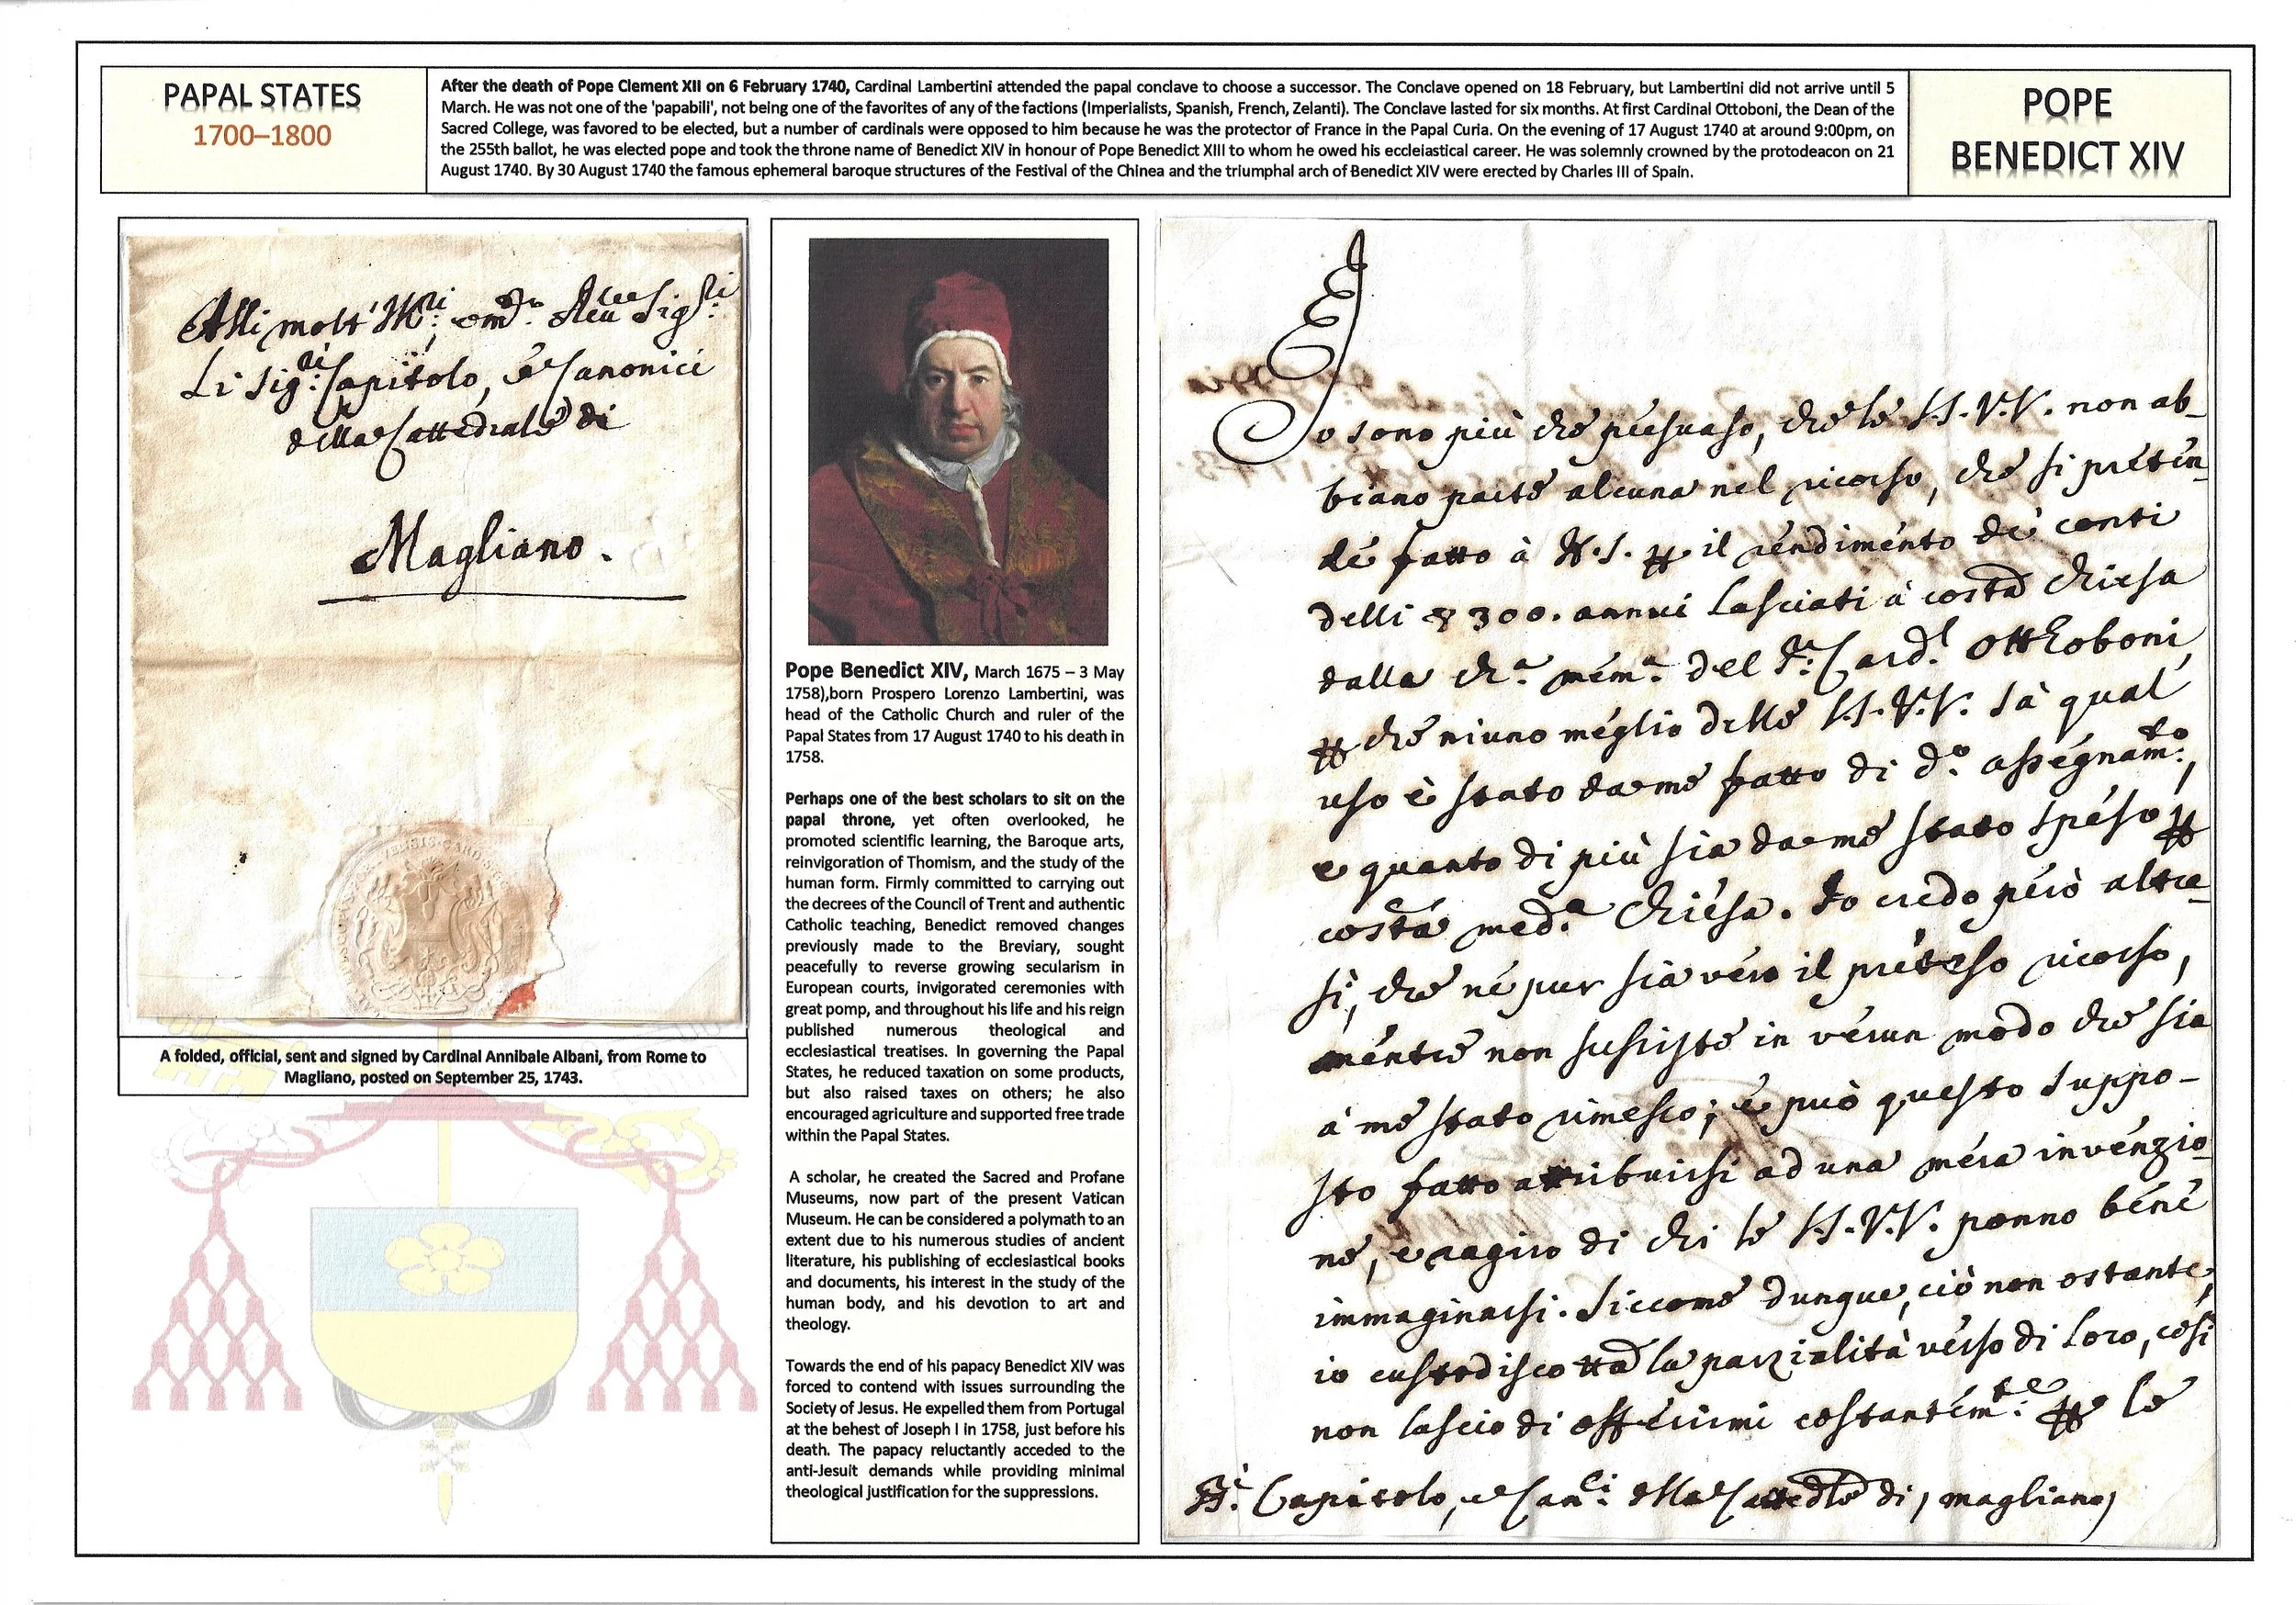 PAPAL STATES
1700–1800
After the death of Pope Clement XII on 6 February 1740, Cardinal Lambertini attended the papal conclave to choose a successor. The Conclave opened on 18 February, but Lambertini did not arrive until 5
March. He was not one of the 'papabili', not being one of the favorites of any of the factions (Imperialists, Spanish, French, Zelanti). The Conclave lasted for six months. At first Cardinal Ottoboni, the Dean of the
Sacred College, was favored to be elected, but a number of cardinals were opposed to him because he was the protector of France in the Papal Curia. On the evening of 17 August 1740 at around 9:00pm, on
the 255th ballot, he was elected pope and took the throne name of Benedict XIV in honour of Pope Benedict XIII to whom he owed his eccleiastical career. He was solemnly crowned by the protodeacon on 21
August 1740. By 30 August 1740 the famous ephemeral baroque structures of the Festival of the Chinea and the triumphal arch of Benedict XIV were erected by Charles III of Spain.
POPE
BENEDICT XIV
Alli molt' Sig:ri
Li Sig:ri Capitolo, e Canonici
della Cattedrale di
Magliano.
A folded, official, sent and signed by Cardinal Annibale Albani, from Rome to
Magliano, posted on September 25, 1743.
Pope Benedict XIV, March 1675 – 3 May
1758),born Prospero Lorenzo Lambertini, was
head of the Catholic Church and ruler of the
Papal States from 17 August 1740 to his death in
1758.
Perhaps one of the best scholars to sit on the
papal throne, yet often overlooked, he
promoted scientific learning, the Baroque arts,
reinvigoration of Thomism, and the study of the
human form. Firmly committed to carrying out
the decrees of the Council of Trent and authentic
Catholic teaching, Benedict removed changes
previously made to the Breviary, sought
peacefully to reverse growing secularism in
European courts, invigorated ceremonies with
great pomp, and throughout his life and his reign
published numerous theological and
ecclesiastical treatises. In governing the Papal
States, he reduced taxation on some products,
but also raised taxes on others; he also
encouraged agriculture and supported free trade
within the Papal States.
A scholar, he created the Sacred and Profane
Museums, now part of the present Vatican
Museum. He can be considered a polymath to an
extent due to his numerous studies of ancient
literature, his publishing of ecclesiastical books
and documents, his interest in the study of the
human body, and his devotion to art and
theology.
Towards the end of his papacy Benedict XIV was
forced to contend with issues surrounding the
Society of Jesus. He expelled them from Portugal
at the behest of Joseph I in 1758, just before his
death. The papacy reluctantly acceded to the
anti-Jesuit demands while providing minimal
theological justification for the suppressions.
Io sono più che persuaso, che le SS.VV. non ab-
biano parte alcuna nel ricorso, che si preten-
de fatto à N.S. il rendimento de' conti
delli 300. annui lasciati à cotesta Chiesa
dalla ch.a mem.a del Card.l Otthoboni,
che niuno meglio delle SS.VV. sà qual'
uso è stato da me fatto di d.o assegnam:to,
e quanto di più sia da me stato speso
cotesta med.a Chiesa. Io credo però altre-
sì, che nè pur sia vero il preteso ricorso,
mentre non susiste in verun modo che sia
à me stato rimesso; e può questo suppo-
sto fatto attribuirsi ad una mera invenzio-
ne, e raggiro di chi le SS.VV. ponno bene
immaginarsi. Siccome dunque, ciò non ostante,
io custodisco tutta la parzialità verso di loro, così
non lascio di offerirmi costantem:te le
Capitolo, e Can:ci della Cattedrale di Magliano